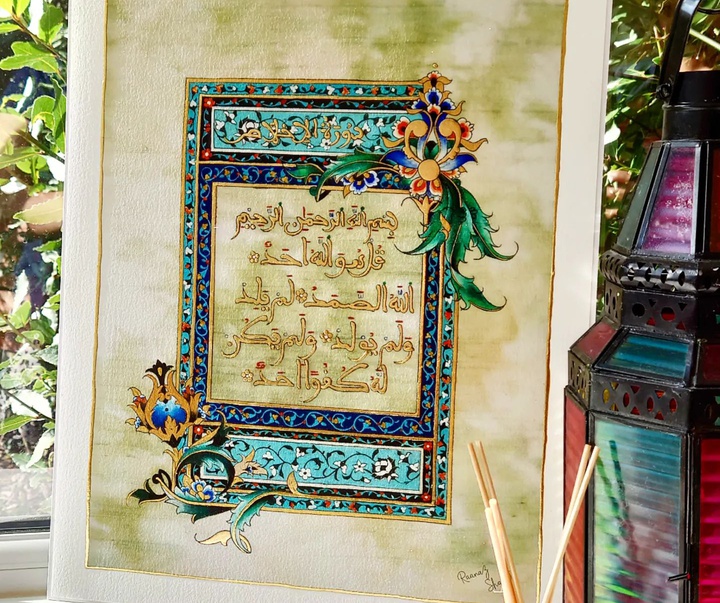 سورة الإخلاص
بِسْمِ اللَّهِ الرَّحْمَٰنِ الرَّحِيمِ
قُلْ هُوَ اللَّهُ أَحَدٌ
اللَّهُ الصَّمَدُ لَمْ يَلِدْ
وَلَمْ يُولَدْ وَلَمْ يَكُن
لَّهُ كُفُوًا أَحَدٌ
Raanaz